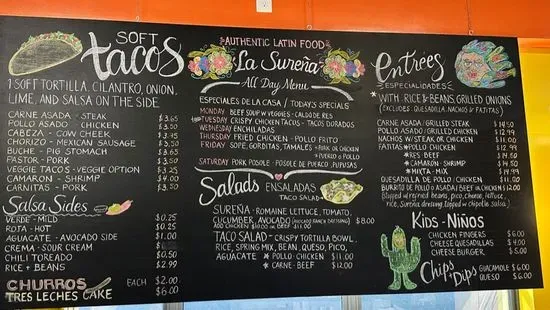 SOFT
tacos
1 SOFT TORTILLA, CILANTRO, ONION,
LIME, AND SALSA ON THE SIDE
CARNE ASADA - STEAK $3.65
POLLO ASADO - CHICKEN $3.50
CABEZA - COW CHEEK $3.75
CHORIZO - MEXICAN SAUSAGE $3.50
BUCHE - PIG STOMACH $3.65
PASTOR - PORK $3.50
VEGGIE TACOS - VEGGIE OPTION $3.25
CAMARON - SHRIMP $4.00
CARNITAS - PORK $3.50
Salsa Sides
VERDE - MILD $0.25
ROJA - HOT $0.25
AGUACATE - AVOCADO SIDE $1.00
CREMA - SOUR CREAM
CHILI TOREADO $0.50
RICE + BEANS $2.99
CHURROS EACH $2.00
TRES LECHES CAKE $6.00
AUTHENTIC LATIN FOOD
La Sureña
All Day Menu
ESPECIALES DE LA CASA / TODAY'S SPECIALS
MONDAY BEEF SOUP W VEGGIES - CALDO DE RES
TUESDAY CRISPY CHICKEN TACOS - TACOS DORADOS
WEDNESDAY ENCHILADAS
THURSDAY FRIED CHICKEN - POLLO FRITO
FRIDAY SOPE, GORDITAS, TAMALES * PORK OR CHICKEN
* PUERCO O POLLO
SATURDAY PORK POSOLE - POSOLE DE PUERCO, PUPUSAS
Salads ENSALADAS
TACO SALAD
SUREÑA - ROMAINE LETTUCE, TOMATO,
CUCUMBER, AVOCADO (AVOCADO RANCH DRESSING) $8.00
ADD CHICKEN $10.00 OR BEEF $11.00
TACO SALAD - CRISPY TORTILLA BOWL,
RICE, SPRING MIX, BEAN, QUESO, PICO,
AGUACATE * POLLO - CHICKEN $11.00
* CARNE - BEEF $12.00
entrées
ESPECIALIDADES
* WITH RICE & BEANS GRILLED ONIONS
(EXCLUDES: QUESADILLA, NACHOS & FAJITAS)
CARNE ASADA / GRILLED STEAK $14.50
POLLO ASADO / GRILLED CHICKEN $12.99
NACHOS W/ STEAK OR CHICKEN $11.00
FAJITAS * POLLO CHICKEN
* RES BEEF $14.50
* CAMARON - SHRIMP $14.50
* MIXTA - MIX
QUESADILLA DE POLLO / CHICKEN $11.00
BURITO DE POLLO O ASADA / BEEF OR CHICKEN $12.00
(Flipped w/ refried beans, pico, cheese, lettuce,
rice, Sureña dressing topped w/ Chipotle Salsa)
KIDS - NIÑOS
CHICKEN FINGERS $6.00
CHEESE QUESADILLAS $4.00
CHEESE BURGER $5.00
Chips + Dips
GUACAMOLE $6.00
QUESO $6.00